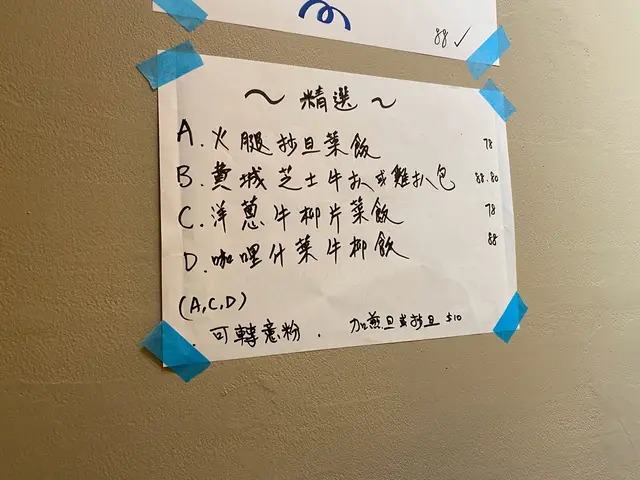 88 ✓
~ 精選 ~
A. 火腿抄旦菜飯 78
B. 黄城芝士牛扒或雞扒包 88.80
C. 洋葱牛柳片菜飯 78
D. 咖哩什菜牛柳飲 88
(A,C,D)
. 可轉意粉 . 加煎旦或抄旦 $10